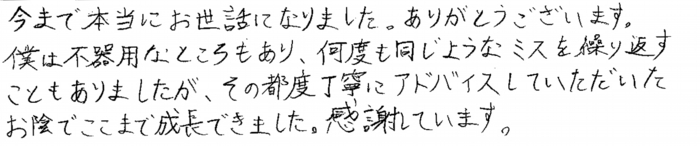 今まで本当にお世話になりました。ありがとうございます。
僕は不器用なところもあり、何度も同じようなミスを繰り返す
こともありましたが、その都度丁寧にアドバイスしていただいた
お陰でここまで成長できました。感謝しています。